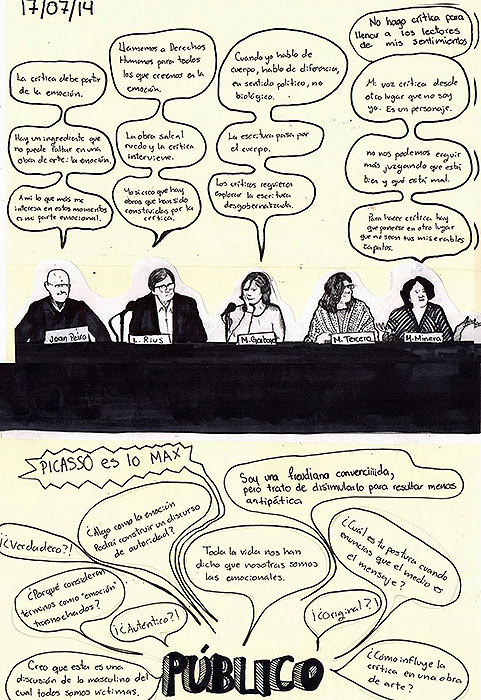 17/07/14
La crítica debe partir
de la emoción.
Hay un ingrediente que
no puede faltar en una
obra de arte: la emoción.
A mí lo que más me
interesa en estos momentos
es mi parte emocional.
Llamemos a Derechos
Humanos para todos
los que creemos en la
emoción.
La obra sale al
ruedo y la crítica
interviene.
Yo sí creo que hay
obras que han sido
construidas por la
crítica.
Cuando yo hablo de
cuerpo, hablo de diferencia,
en sentido político, no
biológico.
La escritura pasa por
el cuerpo.
Los críticos requieren
explorar la escritura
desgobernalizada.
No hago crítica para
llenar a los lectores
de mis sentimientos
Mi voz crítica desde
otro lugar que no soy
yo. Es un personaje.
no nos podemos erguir
más juzgando que está
bien y qué está mal.
Para hacer crítica hay
que ponerse en otro lugar
que no sean tus miserables
zapatos.
Joan Peiro
L. Rius
M. Garbayo
M. Tercero
M. Minera
PICASSO es lo MAX
Soy una freudiana convenciiiida,
pero trato de disimularlo para resultar menos
antipática
¿Algo como la emoción
Podrá construir un discurso
de autoridad?
¡¿Verdadero?!
¿Cuál es tu postura cuando
enuncias que el medio es
el mensaje?
Toda la vida nos han
dicho que nosotras somos
las emocionales.
¿Porqué consideran
términos como "emoción"
trasnochados?
¡¿Auténtico?!
¡¿Original?!
Creo que esta es una
discusión de lo masculino del
cual todos somos víctimas.
PÚBLICO
¿Cómo influye la
crítica en una obra
de arte?